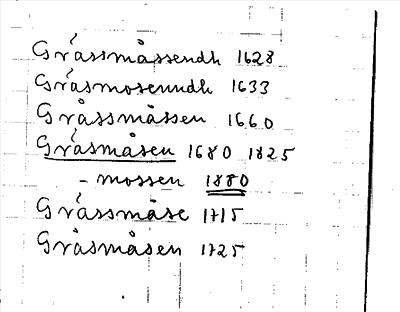 Gråssmåssendh 1628
Gråsmosenndh 1633
Gråssmåssen 1660
Gråsmåsen 1680 1825
- mossen 1880
Gråssmåse 1715
Gråsmåsen 1725